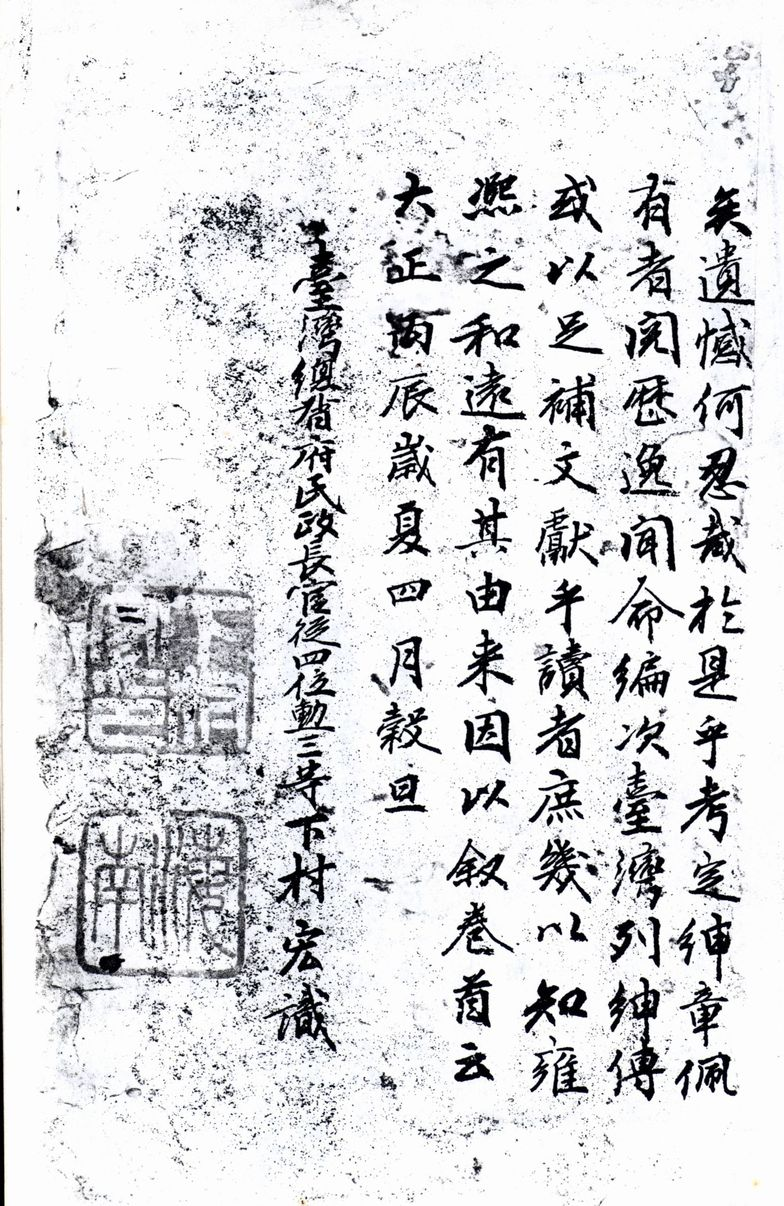 矣遺憾何忍哉於是乎考定紳章佩
有者閱歷逸聞命編次臺灣列紳傳
或以足補文獻乎讀者庶幾以知雍
熙之和遠有其由来因以叙卷首云
大正丙辰歲夏四月穀旦
臺灣總督府民政長官從四位勳三等下村宏識
下村宏印
海南